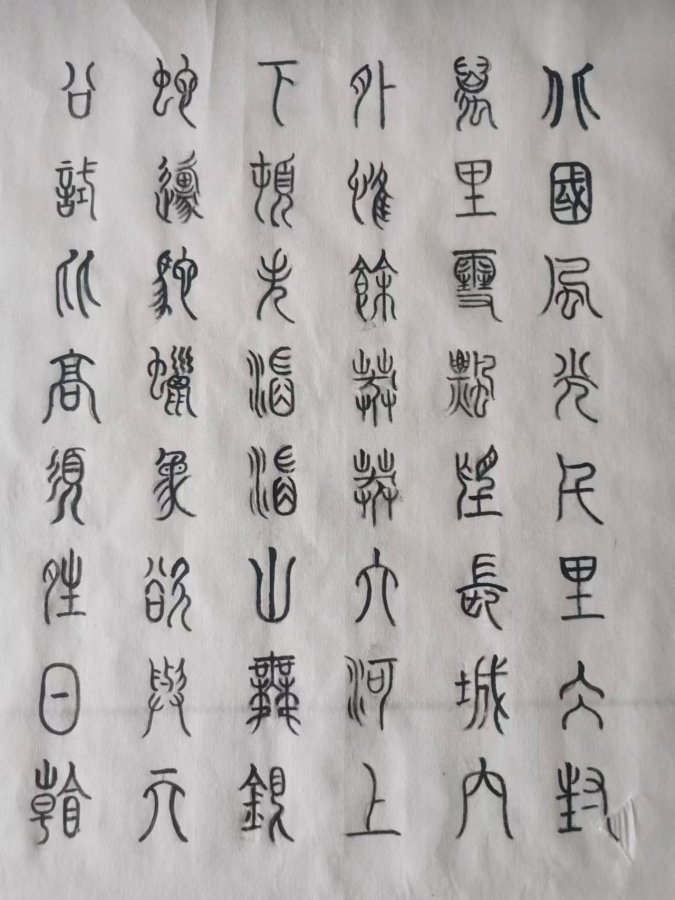 北國風光千里冰封
萬里雪飄望長城內
外惟餘莽莽大河上
下頓失滔滔山舞銀
蛇原馳蠟象欲與天
公試比高須晴日看